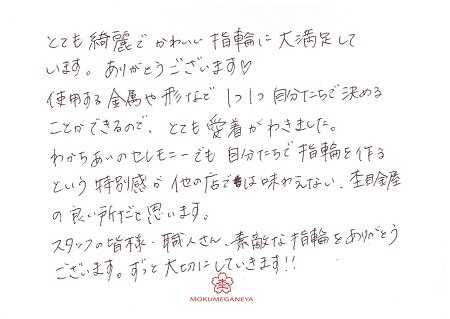 とても綺麗でかわいい指輪に大満足して
います。ありがとうございます♡
使用する金属や形など1つ1つ自分たちで決める
ことができるので、とても愛着がわきました。
わかちあいのセレモニーでも自分たちで指輪を作る
という特別感が他の店では味わえない、杢目金屋
の良い所だと思います。
スタッフの皆様・職人さん、素敵な指輪をありがとう
ございます。ずっと大切にしていきます!!
杢
MOKUMEGANEYA